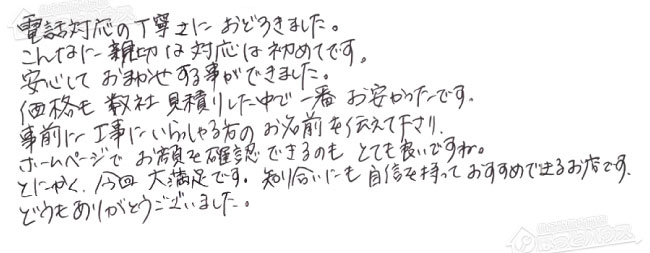 電話対応の丁寧さに おどろきました。
こんなに 親切な 対応は 初めてです。
安心して おまかせする事ができました。
価格も 数社 見積りした中で 一番 お安かったです.
事前に 工事に いらっしゃる方の お名前を伝えて下さり.
ホームページで お顔を 確認できるのも とても良いですね。
とにかく、今回 大満足です. 知り合いにも 自信を持って おすすめできるお店です.
どうもありがとうございました。